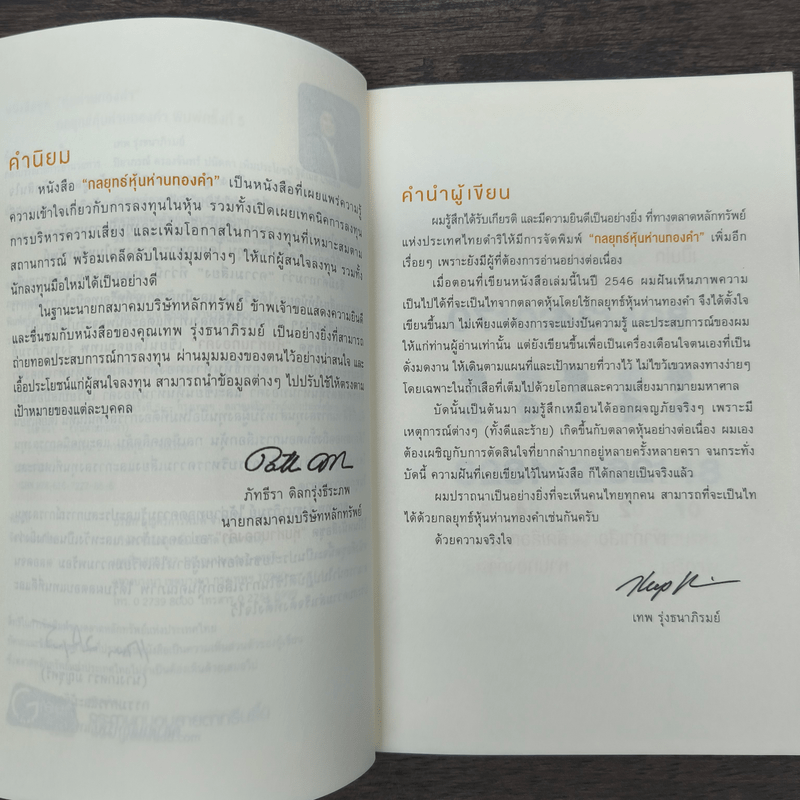 คำนิยม
หนังสือ “กลยุทธ์หุ้นห่านทองคำ” เป็นหนังสือที่เผยแพร่ความรู้
ความเข้าใจเกี่ยวกับการลงทุนในหุ้น รวมทั้งเปิดเผยเทคนิคการลงทุน
การบริหารความเสี่ยง และเพิ่มโอกาสในการลงทุนที่เหมาะสมตาม
สถานการณ์ พร้อมเคล็ดลับในแง่มุมต่างๆ ให้แก่ผู้สนใจลงทุน รวมทั้ง
นักลงทุนมือใหม่ได้เป็นอย่างดี
ในฐานะนายกสมาคมบริษัทหลักทรัพย์ ข้าพเจ้าขอแสดงความยินดี
และชื่นชมกับหนังสือของคุณเทพ รุ่งธนาภิรมย์ เป็นอย่างยิ่งที่สามารถ
ถ่ายทอดประสบการณ์การลงทุน ผ่านมุมมองของตนไว้อย่างน่าสนใจ และ
เอื้อประโยชน์แก่ผู้สนใจลงทุน สามารถนำข้อมูลต่างๆ ไปปรับใช้ให้ตรงตาม
เป้าหมายของแต่ละบุคคล
ภัทธีรา ดิลกรุ่งธีระภพ
นายกสมาคมบริษัทหลักทรัพย์
คำนำผู้เขียน
ผมรู้สึกได้รับเกียรติ และมีความยินดีเป็นอย่างยิ่ง ที่ทางตลาดหลักทรัพย์
แห่งประเทศไทยดำริให้มีการจัดพิมพ์ “กลยุทธ์หุ้นห่านทองคำ” เพิ่มอีก
เรื่อยๆ เพราะยังมีผู้ที่ต้องการอ่านอย่างต่อเนื่อง
เมื่อตอนที่เขียนหนังสือเล่มนี้ในปี 2546 ผมฝันเห็นภาพความ
เป็นไปได้ที่จะเป็นไทจากตลาดหุ้นโดยใช้กลยุทธ์หุ้นห่านทองคำ จึงได้ตั้งใจ
เขียนขึ้นมา ไม่เพียงแต่ต้องการจะแบ่งปันความรู้ และประสบการณ์ของผม
ให้แก่ท่านผู้อ่านเท่านั้น แต่ยังเขียนขึ้นเพื่อเป็นเครื่องเตือนใจตนเองที่เป็น
ดั่งมดงาน ให้เดินตามแผนที่และเป้าหมายที่วางไว้ ไม่ไขว้เขวหลงทางง่ายๆ
โดยเฉพาะในถ้ำเสือที่เต็มไปด้วยโอกาสและความเสี่ยงมากมายมหาศาล
บัดนั้นเป็นต้นมา ผมรู้สึกเหมือนได้ออกผจญภัยจริงๆ เพราะมี
เหตุการณ์ต่างๆ (ทั้งดีและร้าย) เกิดขึ้นกับตลาดหุ้นอย่างต่อเนื่อง ผมเอง
ต้องเผชิญกับการตัดสินใจที่ยากลำบากอยู่หลายครั้งหลายครา จนกระทั่ง
บัดนี้ ความฝันที่เคยเขียนไว้ในหนังสือ ก็ได้กลายเป็นจริงแล้ว
ผมปรารถนาเป็นอย่างยิ่งที่จะเห็นคนไทยทุกคน สามารถที่จะเป็นไท
ได้ด้วยกลยุทธ์หุ้นห่านทองคำเช่นกันครับ
ด้วยความจริงใจ
เทพ รุ่งธนาภิรมย์